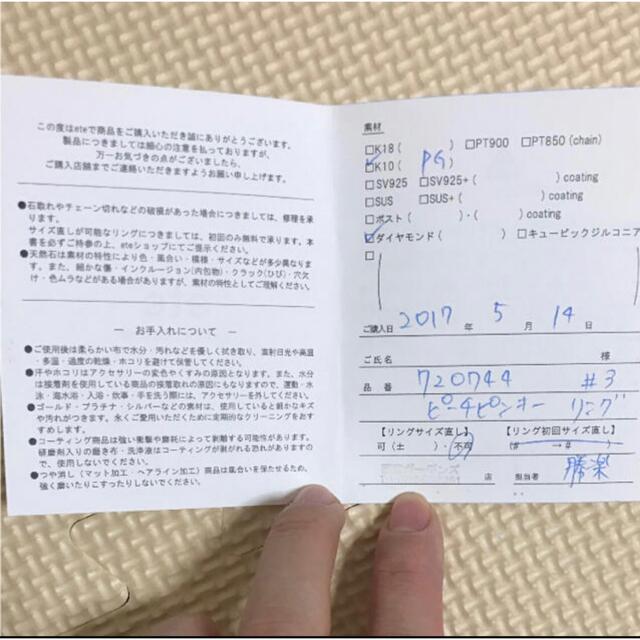 この度はeteで商品をご購入いただき誠にありがとうございます。
製品につきましては細心の注意を払っておりますが、
万一お気づきの点がございましたら、
ご購入店舗までご連絡いただきますようお願い申し上げます。
●石取れやチェーン切れなどの破損があった場合につきましては、修理を承
ります。
サイズ直しが可能なリングにつきましては、初回のみ無料で承ります。本
書を必ずご持参の上、eteショップにてご提示ください。
●天然石は素材の特性により色・風合い・模様・サイズなどが多少異なりま
す。また、細かな傷・インクルージョン(内包物)・クラック(ひび)・穴欠
け・色ムラなどがある場合がありますが、素材の特性としてご理解ください。
― お手入れについて ―
●ご使用後は柔らかい布で水分・汚れなどを優しく拭き取り、直射日光や高温
・多湿・過度の乾燥・ホコリを避けて保管してください。
●汗やホコリはアクセサリーの変色やくすみの原因となります。また、水分
は接着剤を使用している商品の接着取れの原因にもなりますので、運動・水
泳・海水浴・入浴・炊事・手を洗う際には、アクセサリーを外してください。
●ゴールド・プラチナ・シルバーなどの素材は、使用していると細かなキズ
や汚れがつきます。永くご愛用いただくために定期的なクリーニングをおす
すめします。
●コーティング商品は強い衝撃や磨耗によって剥離する可能性があります。
研磨剤入りの磨き布・洗浄液はコーティングが剥がれる恐れがありますの
で、使用しないでください。
●つや消し(マット加工・ヘアライン加工)商品は風合いを保たせるため、
強く磨いたりこすったりしないでください。
素材
□K18 ( ) □PT900 □PT850 (chain)
☑K10 ( PG )
□SV925 □SV925+ ( ) coating
□SUS □SUS+ ( ) coating
□ポスト ( )・( ) coating
☑ダイヤモンド ( ) □キュービックジルコニア
□
ご購入日 2017 年 5 月 14 日
ご氏名 様
品番 720744 #3
ピーチピンキー リング
【リングサイズ直し】 【リング初回サイズ直し】
可 (± )・不可 (# →# )
店 担当者 勝楽